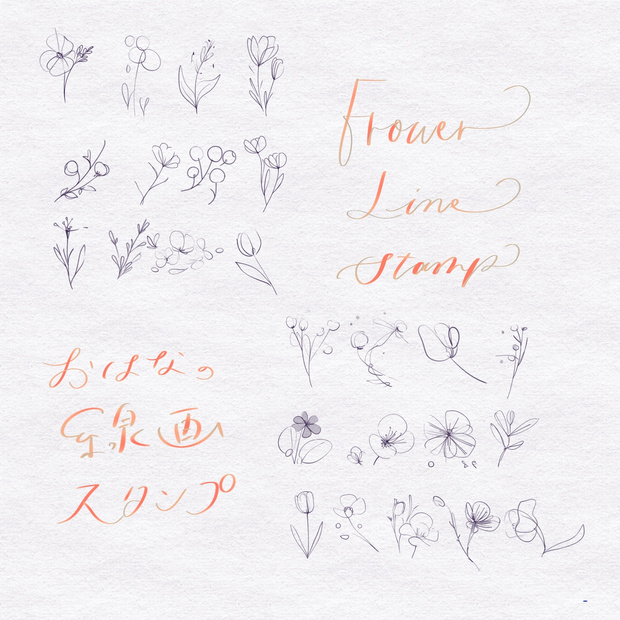 Frower
Line
stamp
おはなの
線画
スタンプ